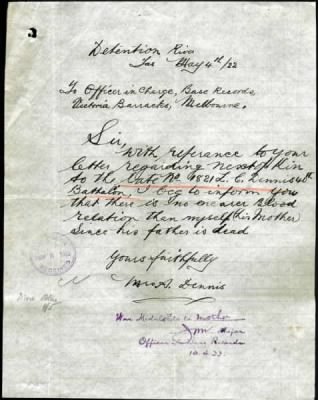 Detention River
Tas May 4th/22
To Officer in Charge, Base Records
Victoria Barracks, Melbourne.
Sir,
With referance to your
letter regarding next of kin
to the late No 1821 L. C. Dennis 40th
Battalion I beg to inform you
that there is no nearer blood
relation than myself his Mother
since his father is dead
Yours faithfully
Mrs A. Dennis
War Medals etc to Mother
Major
Officer i/c Base Records